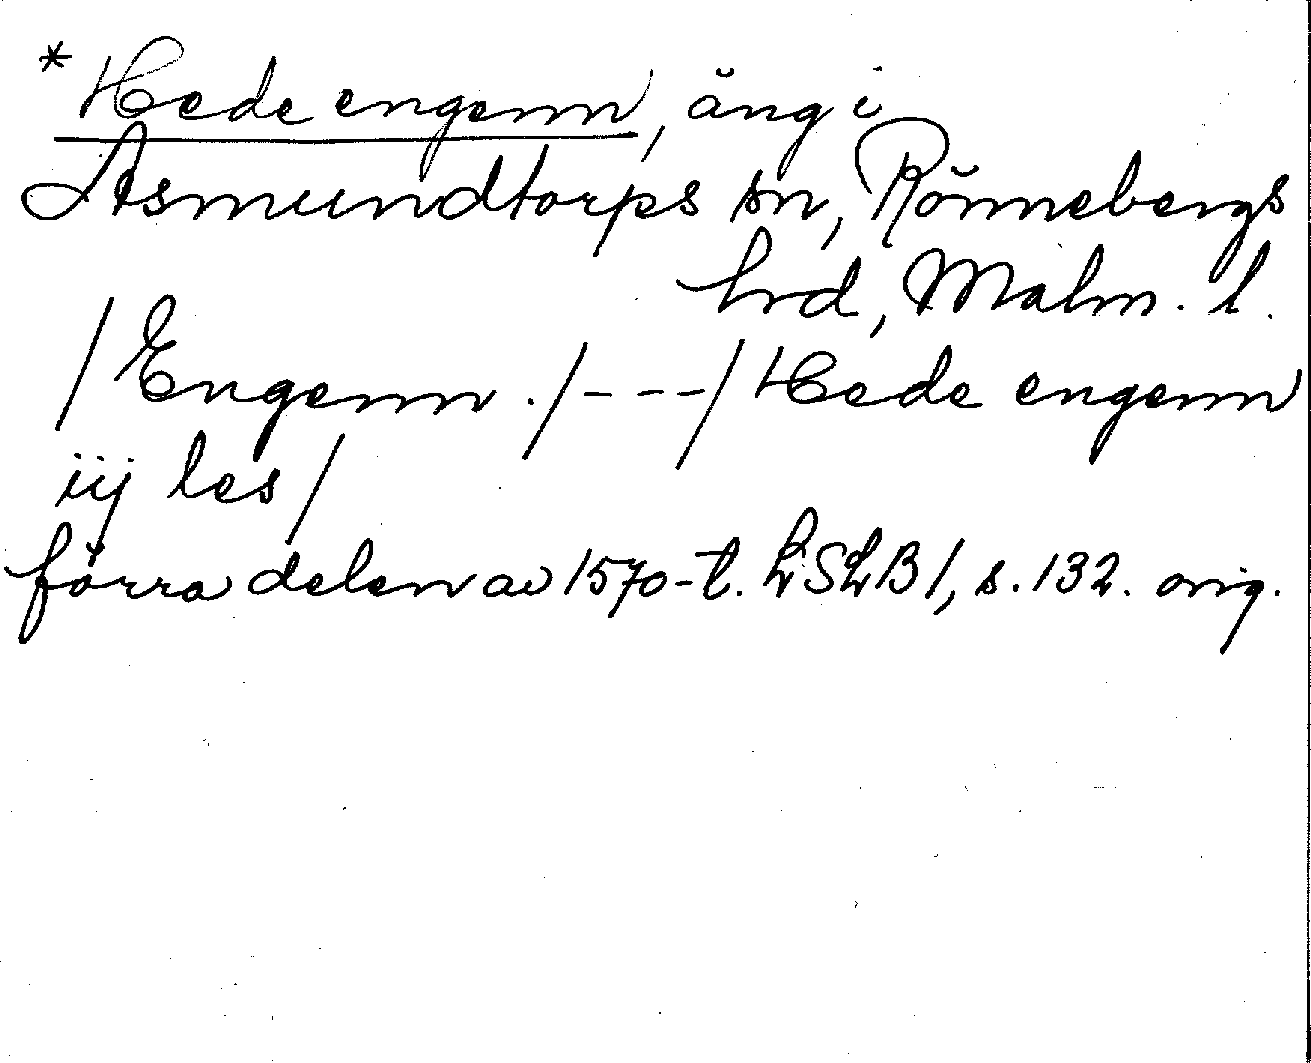 * Hede engenn, äng i
Asmundtorps sn, Rönnebergs
hrd, Malm. l.
/ Engenn . / - - - / Hede engenn
iij les /
förra delen av 1570-t. LSLB 1, s. 132. orig.